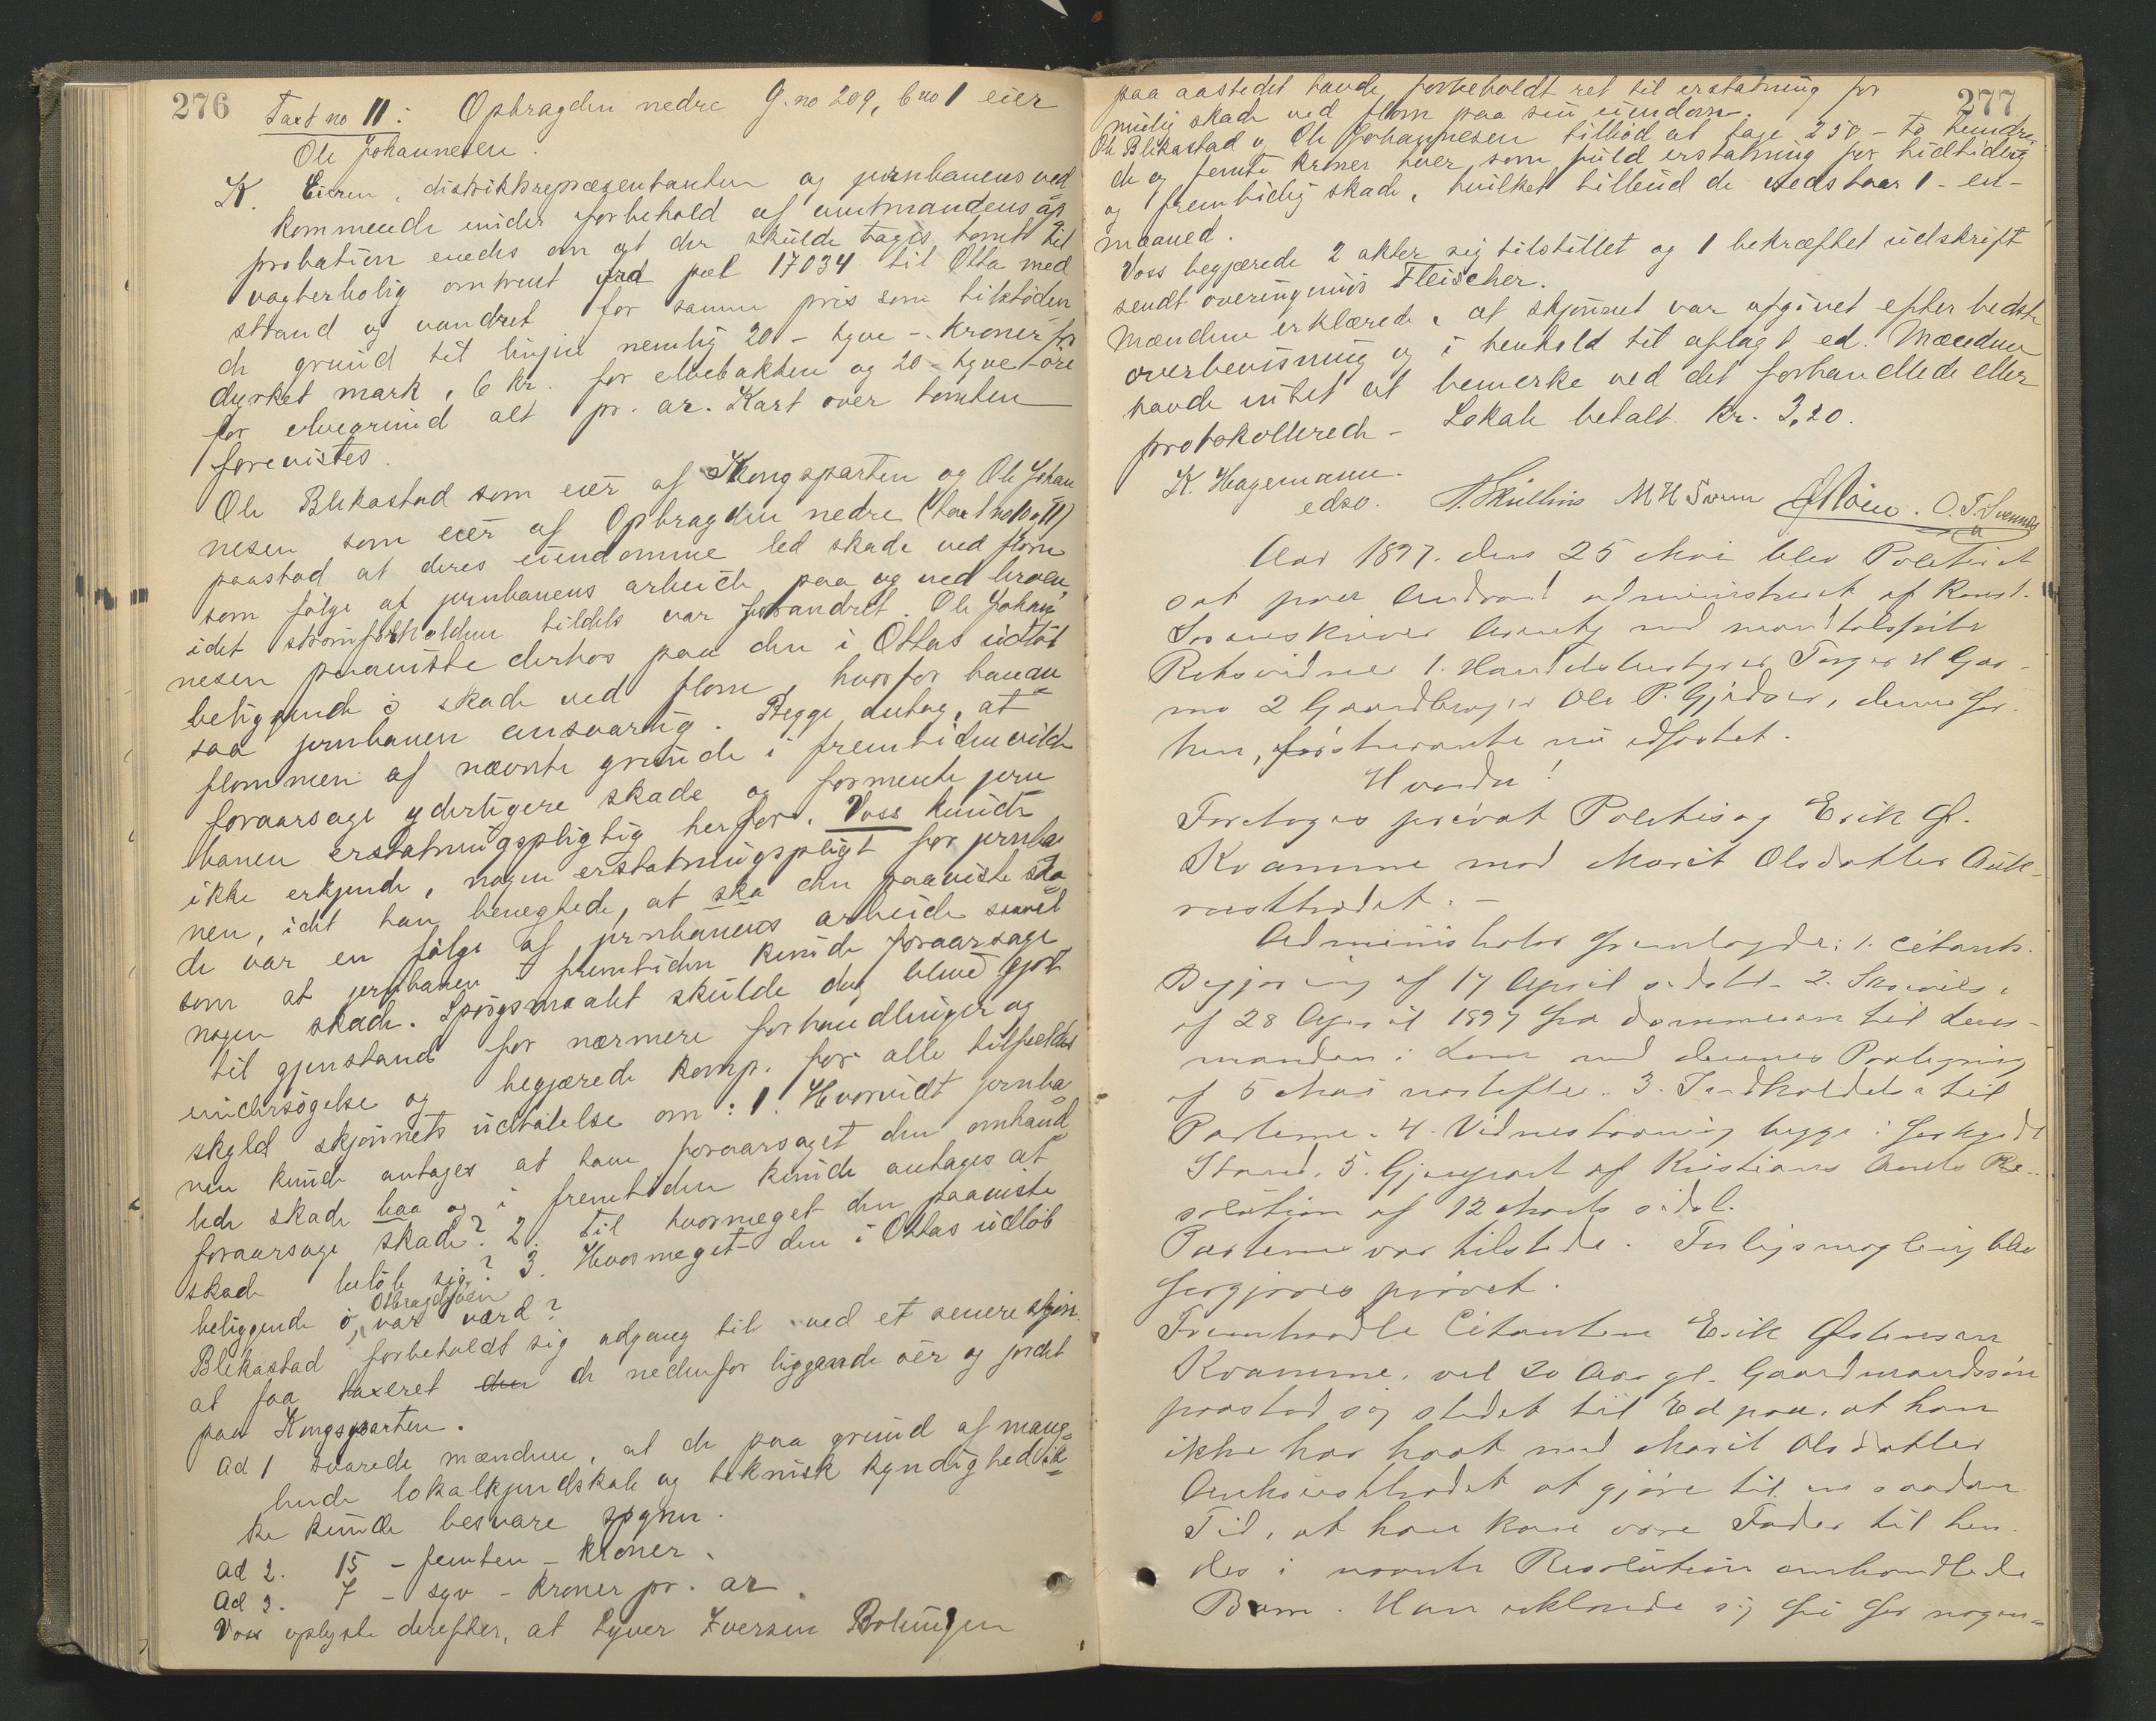 276
Taxt no 11: Opbragden nedre G. no 209, b no 1 eier
Ole Johannesen.
K. Eieren, distriktsrepræsentanten og jernbanens ved
kommende under forbehold af amtmandens ap
probation enedes om at der skulde tages tomt til
vogterbolig omtrent ved pæl 17034 til Otta med
strand og vandret for samme pris som tilstøden
de grund til linjen nemlig 20 - tyve - kroner for
dyrket mark, 6 kr. for elvebakken og 20 - tyve - øre
for elvegrund alt pr. ar. Kart over tomten
forevistes.
Ole Blekastad som eier af Kongsparten og Ole Johan
nesen som eier af Opbragden nedre (taxt no 10 og 11)
paastod at deres eiendomme led skade ved flom
som følge af jernbanens arbeide paa og ved broen,
idet strømforholdene tildels var forandret. Ole Johan
nesen paaviste derhos paa den i Ottas udløb
beliggende ø skade ved flom, hvorfor han an
saa jernbanen ansvarlig. Begge antog, at
flommen af nævnte grunde i fremtiden vilde
foraarsage yderligere skade og formente jern
banen erstatningspligtig herfor. Voss kunde
ikke erkjende, nogen erstatningspligt for jernba
nen, idet han benegtede, at ska den paaviste ska
de var en følge af jernbanens arbeide saavel
som at jernbanen i fremtiden kunde foraarsage
nogen skade. Spørgsmaalet skulde dog blive gjort
til gjenstand for nærmere forhandlinger og
undersøgelse og begjærede komp. for alle tilfældes
skyld skjønnets udtalelse om: 1. Hvorvidt jernba
nen kunde antages at have foraarsaget den omhand
lede skade paa og i fremtiden kunde antages at
foraarsage skade? 2. Til hvormeget den paaviste
skade beløb sig? 3. Hvormeget den i Ottas udløb
beliggende ø, Obragdøen var værd?
Blekastad forbeholdt sig adgang til ved et senere skjøn
at faa taxeret den de nedenfor liggende øer og jordet
paa Kongsparten.
ad 1 svarede mændene, at de paa grund af mang-
lende lokalkjendskab og teknisk kyndighed ik-
ke kunde besvare spgsm.
ad 2. 15 - femten - kroner.
ad 3. 7 - syv - kroner pr. ar.
Voss oplyste derefter, at Syver Iversen
277
paa aastedet havde forbeholdt ret til erstatning for
mulig skade ved flom paa sin eiendom.
Ole Blekastad og Ole Johannesen tilbød at tage 250 - to hundre
de og femti kroner hver, som fuld erstatning for hidtidig
og fremtidig skade, hvilket tilbud de vedstaar 1 - en -
maaned.
Voss begjærede 2 akter sig tilstillet og 1 bekræftet udskrift
sendt overingeniør Fleischer.
Mændene erklærede, at skjønnet var afgivet efter bedste
overbevisning og i henhold til aflagt ed. Mændene
havde intet at bemerke ved det forhandlede eller
protokollerede - Lokale betalt kr. 3,20.
K. Hagemann
edsv.
Aar 1897. den 25 Mai blev Politiret
sat paa Andvord administreret af Konst.
Sorenskriver med mandtalsførte
Retsvidner 1. Handelsbestyrer Torger H Gar-
mo 2 Gaardbruger Ole P. Gjeder, denne for-
hen, førstnævnte nu edfæstet.
Hvorda!
Foretoges privat Politisag Erik Ø.
Kvamme mod Marit Olsdatter Auk-
rusttrødet. -
Administrator fremlagde: 1. Citants.
Begjæring af 17 April sidstl. 2. Skrivelse
af 28 April 1897 fra dommeren til Lens-
manden i Lom med dennes Paategning
af 5 Mai næstefter. 3. Indkaldelse til
Parterne. 4. Vidnestævning begge i forkyndt
Stand. 5. Gjenpart af Kristians Amts Re-
solution af 12 Marts sidstl.
Parterne var tilstede. Forligsmægling blev
forgjæves prøvet.
Fremtraadte Citanten Erik Østensen
Kvamme, vel 20 Aar gl. Gaardmandssøn
paastod sig stedet til Ed paa, at han
ikke har havt med Marit Olsdatter
Aukrusttrødet at gjøre til en saadan
Tid, at han kan være Fader til hen-
des i nævnte Resolution omhandlede
Barn. Han erklærede sig fri for nogen-